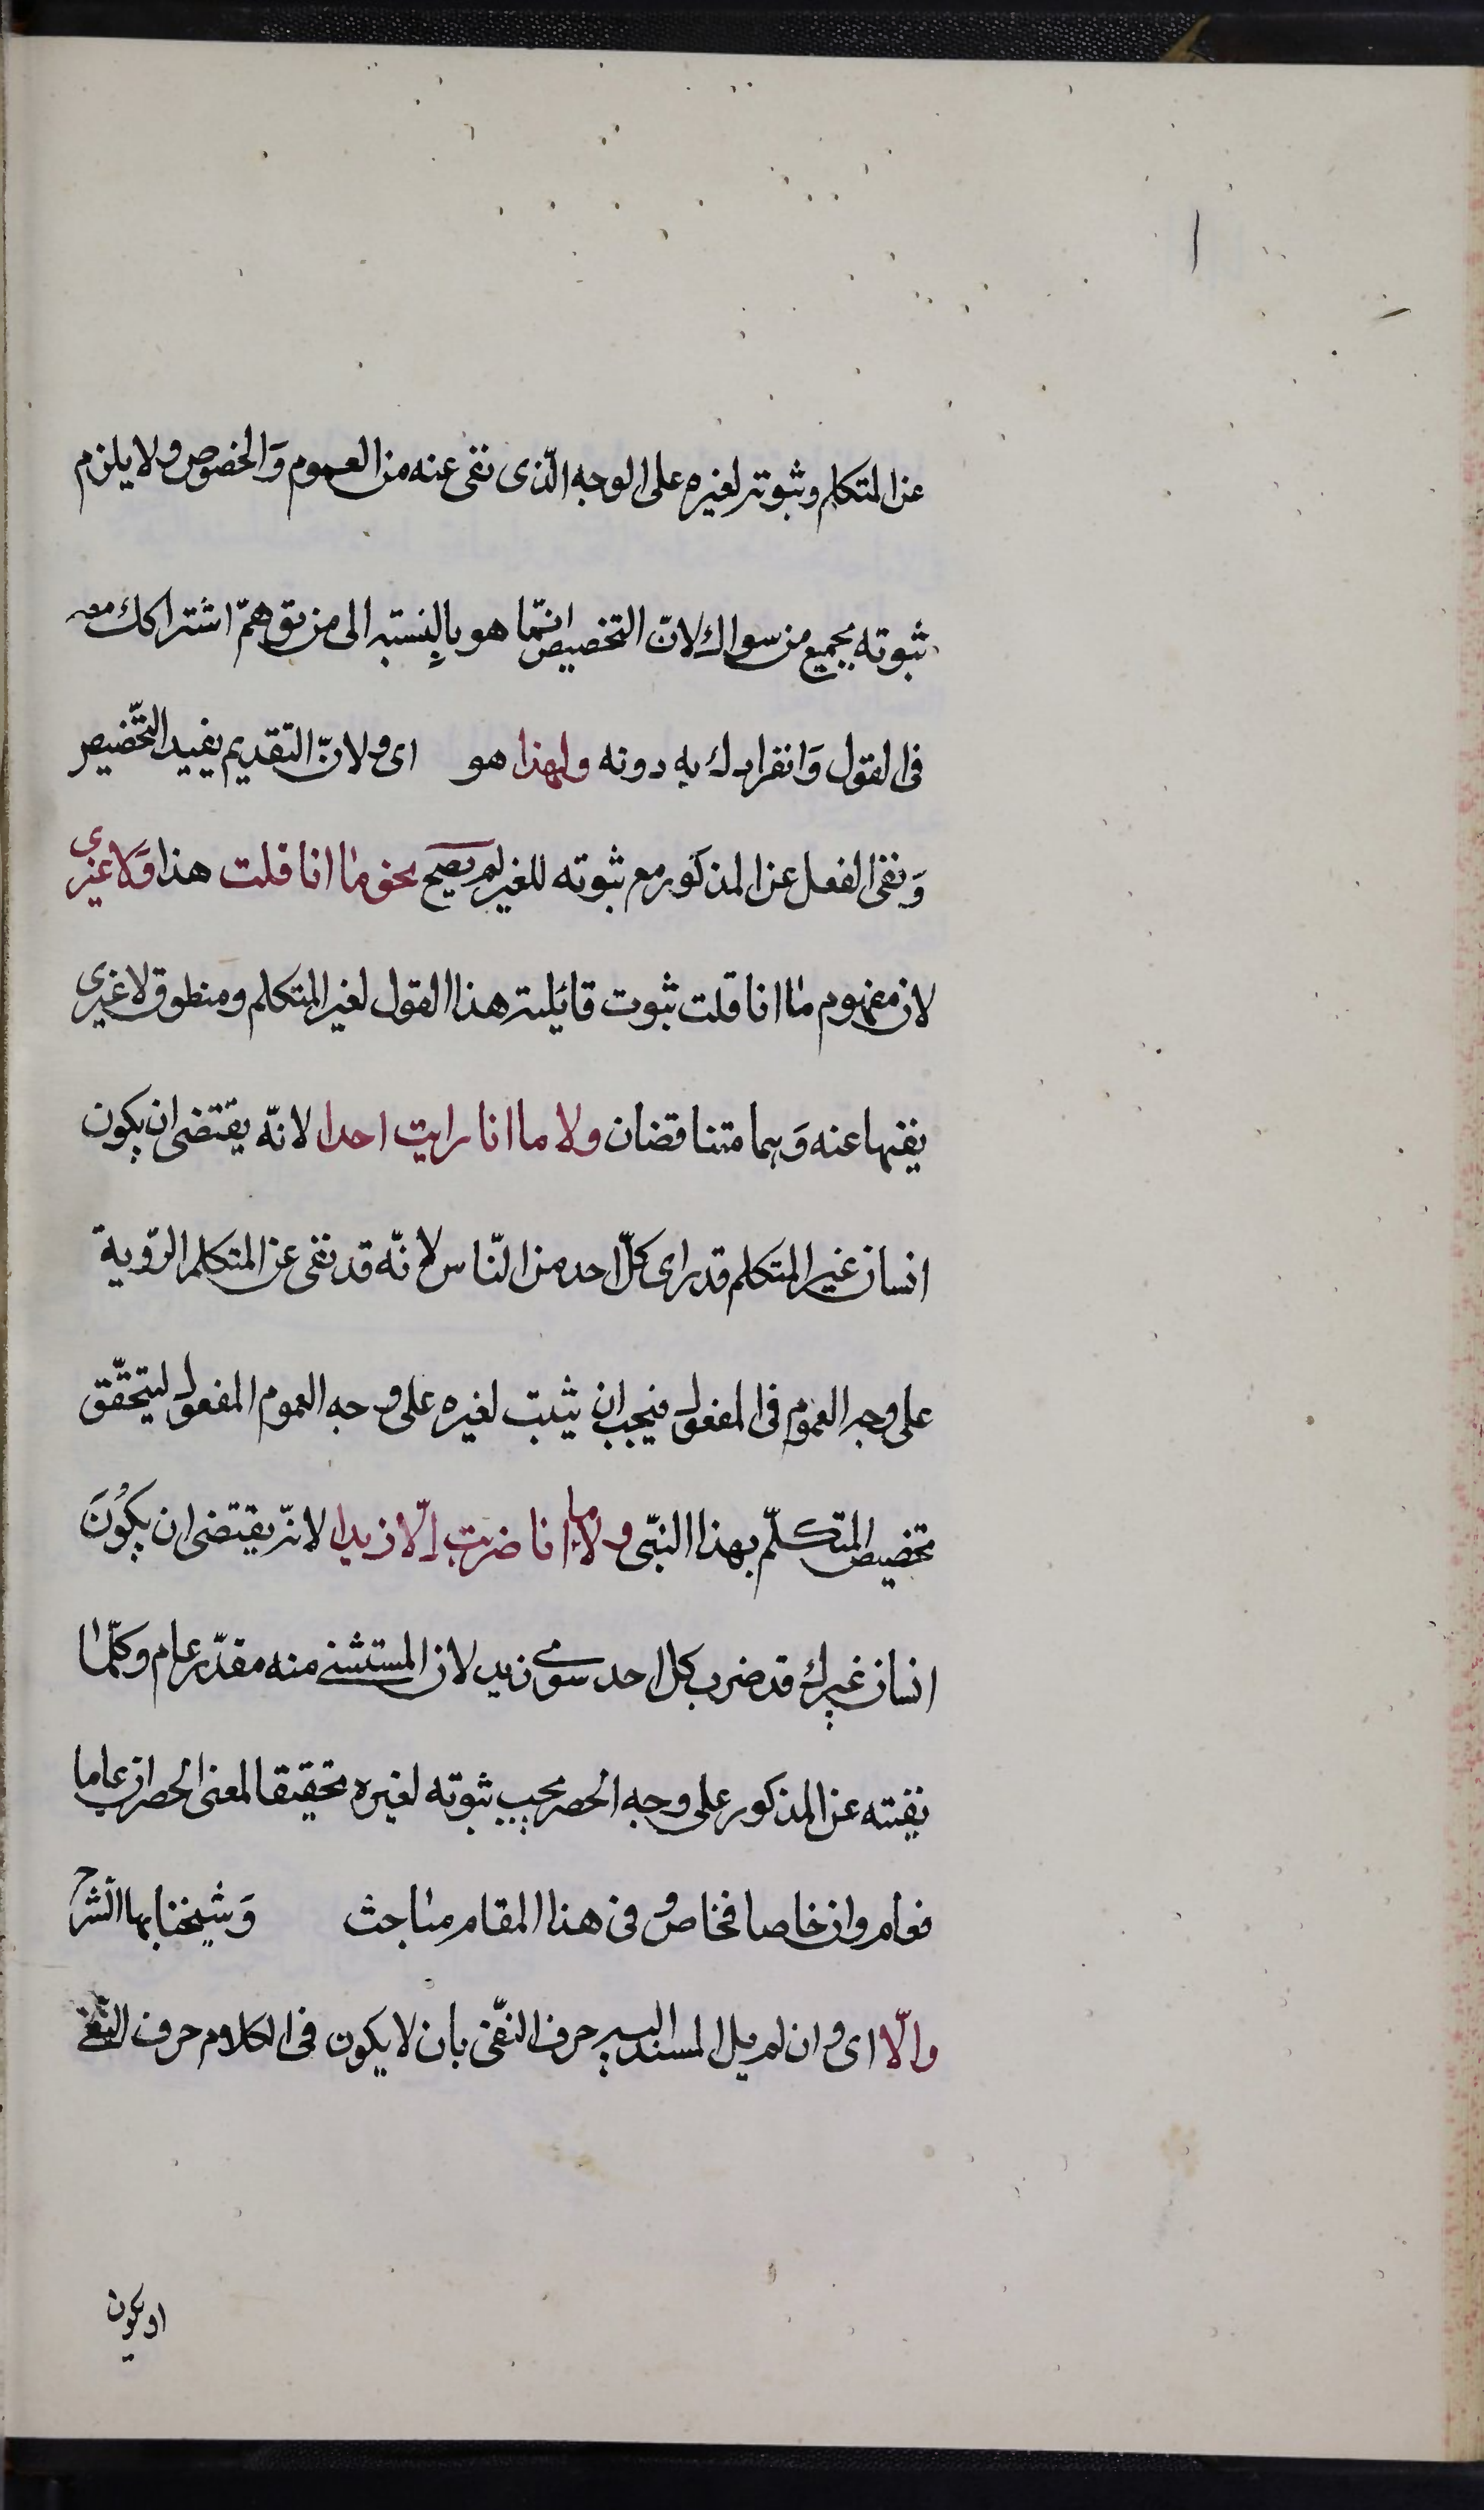 ١
عن المتكلم وثبوته لغيره على الوجه الّذى نفى عنه من العموم وَالخصوص ولا يلزم
ثبوته بجميع من سواك لانّ التخصيص انّما هو بالنسبته الى من توهمّ اشتراكك معه
فى القول وَانفرادك به دونه ولهذا هو اى ولانّ التقديم يفيد التّخصيص
وَنفى الفعل عن المذكور مع ثبوته للغير لم يصح نحو ما انا قلت هذا وَلا غيرى
لان مفهوم ما انا قلت ثبوت قائلية هذا القول لغير المتكلم ومنطوق لا غيرى
نفيها عنه وَهما متناقضان ولا ما انا رايت احدا لانّه يقتضى ان يكون
انسان غير المتكلم قد راى كلّ احد من النّاس لانّه قد نفى عن المتكلم الرّوية
على وجه العموم فى المفعول فيجب ان يثبت لغيره على وجه العموم المفعول ليتحقّق
تخصيص المتكلّم بهذا النّبى ولا ما انا ضربت إلّا زيدا لانّه يقتضى ان يكُونَ
انسان غيرك قد ضرب كل احد سوى زيد لان المستثنى منه مقدّر عام وكلّما
نفيته عن المذكور على وجه الحصر يجب ثبوته لغيره تحقيقا لمعنى الحصر ان عاما
فعام وان خاصا فخاص وفى هذا المقام مباحث وَشيخنا بها الشرح
والّا اى وان لم يل المسند اليه حرف النفّى بان لا يكون فى الكلام حرف النّفى
او يكون